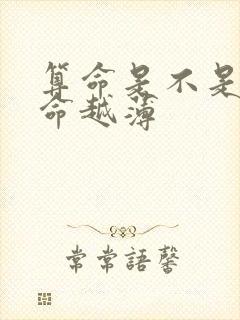 算命是不是
命越薄
常常語馨